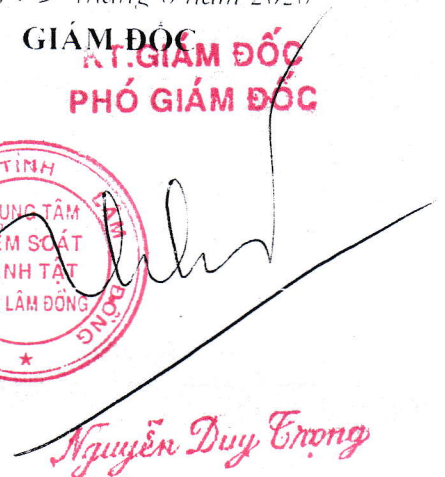 tháng 6 năm 2020
GIÁM ĐỐC
KT.GIÁM ĐỐC
PHÓ GIÁM ĐỐC
TỈNH LÂM ĐỒNG
UNG TÂM
ỂM SOÁT
NH TẬT
LÂM ĐỒNG
Nguyễn Duy Trọng